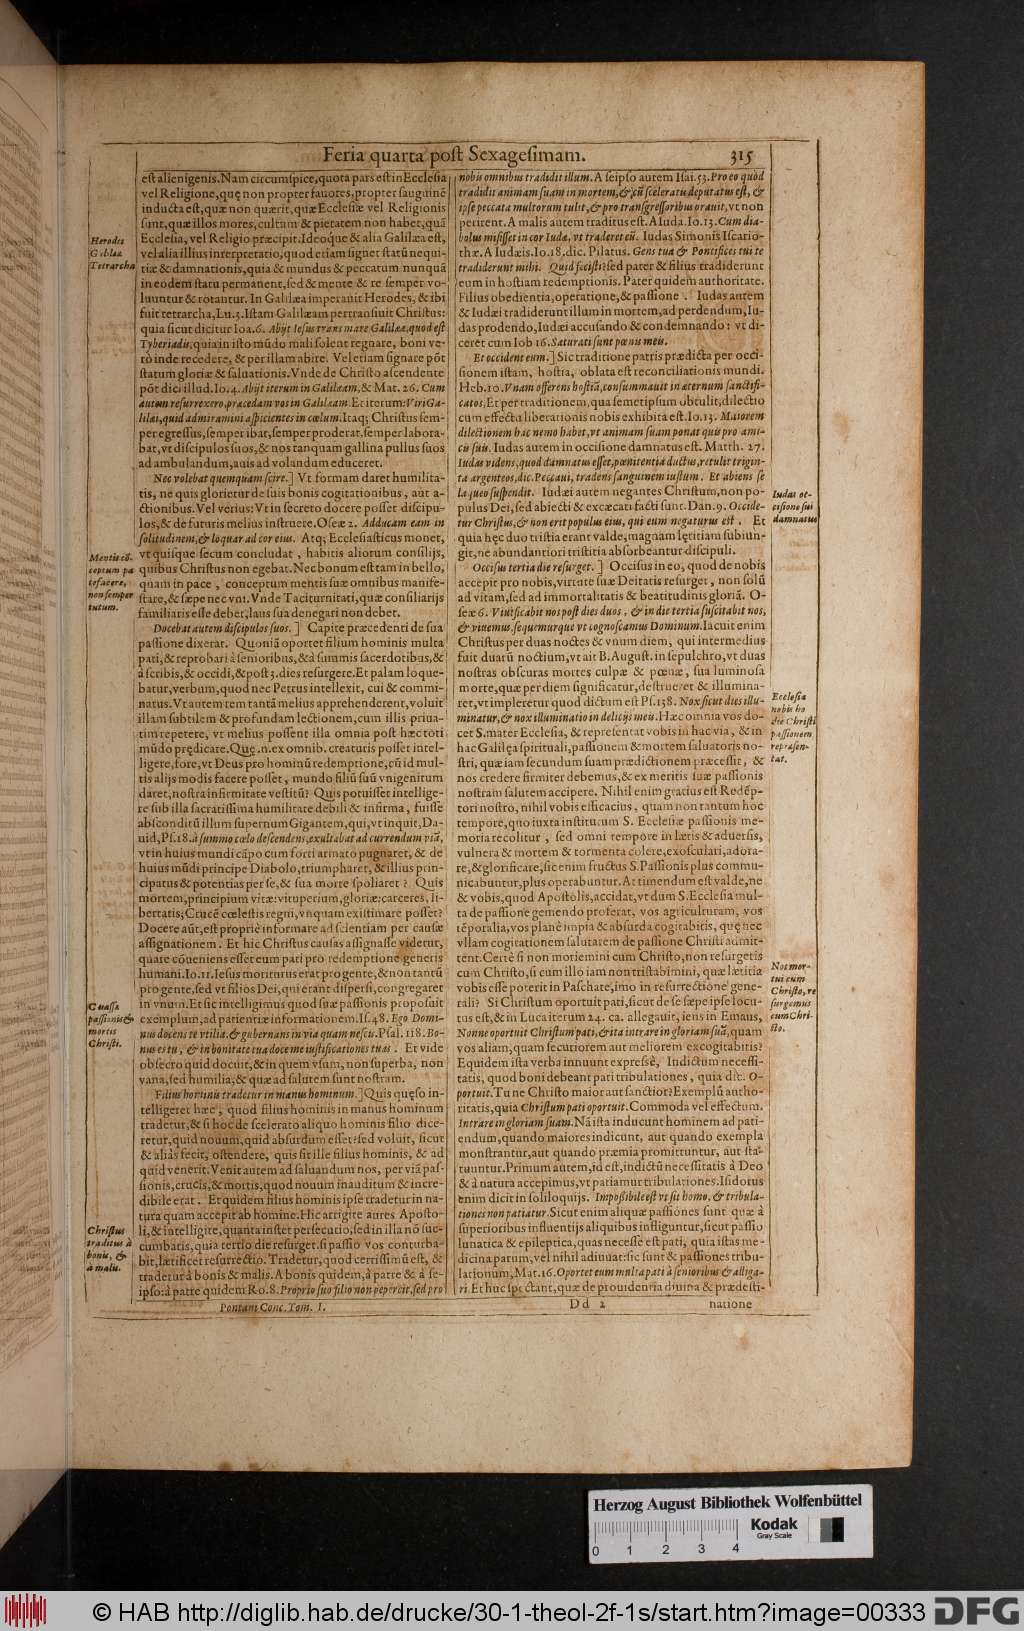 Feria quarta post Sexagesimam. 315
est alienigenis. Nam circumspice, quota pars est in Ecclesia
vel Religione, quę non propter fauores, propter sanguinē
inducta est, quæ non quærit, quæ Ecclesiæ vel Religionis
sunt, quæ illos mores, cultum & pietatem non habet, quā
Ecclesia, vel Religio præcipit. Ideoque & alia Galilæa est,
vel alia illius interpretatio, quod etiam signet statū nequi-
tiæ & damnationis, quia & mundus & peccatum nunquā
in eodem statu permanent, sed & mente & re semper vo-
luuntur & rotantur. In Galilæa imperauit Herodes, & ibi
fuit tetrarcha, Lu. 3. Istam Galilæam pertransiuit Christus:
quia sicut dicitur Ioa. 6. Abijt Iesus trans mare Galilææ, quod est
Tyberiadis, quia in isto mūdo mali solent regnare, boni ve-
rò inde recedere, & per illam abire. Vel etiam signare pōt
statum gloriæ & saluationis. Vnde de Christo ascendente
pōt dici illud. Io. 4. Abijt iterum in Galilæam, & Mat. 26. Cum
autem resurrexero, præcedam vos in Galilæam. Et iterum: Viri Ga-
lilæi, quid admiramini aspicientes in cœlum. Itaq; Christus sem-
per egressus, semper ibat, semper proderat, semper labora-
bat, vt discipulos suos, & nos tanquam gallina pullus suos
ad ambulandum, auis ad volandum educeret.
Nec volebat quemquam scire.] Vt formam daret humilita-
tis, ne quis glorietur de suis bonis cogitationibus, aut a-
ctionibus. Vel verius: Vt in secreto docere posset discipu-
los, & de futuris melius instruere. Oseæ 2. Adducam eam in
solitudinem, & loquar ad cor eius. Atq; Ecclesiasticus monet,
vt quisque secum concludat, habitis aliorum consilijs,
quibus Christus non egebat. Nec bonum est tam in bello,
quam in pace, conceptum mentis suæ omnibus manife-
stare, & sæpe nec vni. Vnde Taciturnitati, quæ consiliarijs
familiaris esse debet, laus sua denegari non debet.
Docebat autem discipulos suos.] Capite præcedenti de sua
passione dixerat. Quoniā oportet filium hominis multa
pati, & reprobari à senioribus, & à summis sacerdotibus, &
à scribis, & occidi, & post 3. dies resurgere. Et palam loque-
batur, verbum, quod nec Petrus intellexit, cui & commi-
natus. Vt autem rem tantā melius apprehenderent, voluit
illam subtilem & profundam lectionem, cum illis priua-
tim repetere, vt melius possent illa omnia post hæc toti
mūdo prędicare. Quę.n. ex omnib. creaturis posset intel-
ligere, fore, vt Deus pro hominū redemptione, cū id mul-
tis alijs modis facere posset, mundo filiū suū vnigenitum
daret, nostra infirmitate vestitū? Quis potuisset intellige-
re sub illa sacratissima humilitate debili & infirma, fuisse
absconditū illum supernum Gigantem, qui, vt inquit, Da-
uid, Ps. 18. à summo cœlo descendens, exultabat ad currendum viā,
vt in huius mundi cāpo cum forti armato pugnaret, & de
huius mūdi principe Diabolo, triumpharet, & illius prin-
cipatus & potentias per se, & sua morte spoliaret? Quis
mortem, principium vitæ: vituperium, gloriæ: carceres, li-
bertatis; Crucē cœlestis regni, vnquam existimare posset?
Docere aūt, est propriè informare ad scientiam per causæ
assignationem. Et hic Christus causas assignasse videtur,
quare cōueniens esset eum pati pro redemptione generis
humani. Io. 11. Iesus moriturus erat pro gente, & non tantū
pro gente, sed vt filios Dei, qui erant dispersi, congregaret
in vnum. Et sic intelligimus quod suæ passionis proposuit
exemplum, ad patientiæ informationem. Is. 48. Ego Domi-
nus docens te vtilia, & gubernans in via quam nescis. Psal. 118. Bo-
nus es tu, & in bonitate tua doce me iustificationes tuas. Et vide
obsecro quid docuit, & in quem vsum, non superba, non
vana, sed humilia, & quæ ad salutem sunt nostram.
Filius hominis tradetur in manus hominum.] Quis quęso in-
telligeret hæc, quod filius hominis in manus hominum
tradetur, & si hoc de scelerato aliquo hominis filio dice-
retur, quid nouum, quid absurdum esset? sed voluit, sicut
& aliàs fecit, ostendere, quis sit ille filius hominis, & ad
quid venerit. Venit autem ad saluandum nos, per viā pas-
sionis, crucis, & mortis, quod nouum inauditum & incre-
dibile erat. Et quidem filius hominis ipse tradetur in na-
tura quam accepit ab homine. Hic arrigite aures Aposto-
li, & intelligite, quanta instet persecutio, sed in illa nō suc-
cumbatis, quia tertio die resurget. si passio vos conturba-
bit, lætificet resurrectio. Tradetur, quod certissimū est, &
tradetur à bonis & malis. A bonis quidem, à patre & à se-
ipso: à patre quidem Ro. 8. Proprio suo filio non pepercit, sed pro
Pontani Conc. Tom. I.
Herodes
Galilææ
Tetrarcha
Mentis cō-
ceptum pa
tefacere,
non semper
tutum.
Caussæ
passionis &
mortis
Christi.
Christus
traditus à
bonis, &
à malis.
nobis omnibus tradidit illum. A seipso autem Isai. 53. Pro eo quòd
tradidit animam suam in mortem, & cū sceleratis deputatus est, &
ipse peccata multorum tulit, & pro transgressoribus orauit, vt non
perirent. A malis autem traditus est. A Iuda. Io. 13. Cum dia-
bolus misisset in cor Iuda, vt traderet eū. Iudas Simonis Iscario-
thæ. A Iudæis. Io. 18. dic. Pilatus. Gens tua & Pontifices tui te
tradiderunt mihi. Quid fecisti? sed pater & filius tradiderunt
eum in hostiam redemptionis. Pater quidem authoritate.
Filius obedientia, operatione, & passione. Iudas autem
& Iudæi tradiderunt illum in mortem, ad perdendum, Iu-
das prodendo, Iudæi accusando & condemnando: vt di-
ceret cum Iob 16. Saturati sunt pœnis meis.
Et occident eum.] Sic traditione patris prædicta per occi-
sionem istam, hostia, oblata est reconciliationis mundi.
Heb. 10. Vnam offerens hostiā, consummauit in æternum sanctifi-
catos, Et per traditionem, qua semetipsum obtulit, dilectio
cum effectu liberationis nobis exhibita est. Io. 15. Maiorem
dilectionem hac nemo habet, vt animam suam ponat quis pro ami-
cis suis. Iudas autem in occisione damnatus est. Matth. 27.
Iudas videns, quod damnatus esset, pœnitentia ductus, retulit trigin-
ta argenteos, dic. Peccaui, tradens sanguinem iustum. Et abiens se
laqueo suspendit. Iudæi autem negantes Christum, non po-
pulus Dei, sed abiecti & excæcati facti sunt. Dan. 9. Occide-
tur Christus, & non erit populus eius, qui eum negaturus est. Et
quia hęc duo tristia erant valde, magnam lętitiam subiun-
git, ne abundantiori tristitia absorbeantur discipuli.
Occisus tertia die resurget.] Occisus in eo, quod de nobis
accepit pro nobis, virtute suæ Deitatis resurget, non solū
ad vitam, sed ad immortalitatis & beatitudinis gloriā. O-
seæ 6. Viuificabit nos post dies duos, & in die tertia suscitabit nos,
& viuemus, sequemurque vt cognoscamus Dominum. Iacuit enim
Christus per duas noctes & vnum diem, qui intermedius
fuit duarū noctium, vt ait B. August. in sepulchro, vt duas
nostras obscuras mortes culpæ & pœnæ, sua luminosa
morte, quæ per diem significatur, destrueret & illumina-
ret, vt impleretur quod dictum est Ps. 138. Nox sicut dies illu-
minatur, & nox illuminatio in delicijs meis. Hæc omnia vos do-
cet S. mater Ecclesia, & repræsentat vobis in hac via, & in
hac Galilęa spirituali, passionem & mortem saluatoris no-
stri, quæ iam secundum suam prædictionem præcessit, &
nos credere firmiter debemus, & ex meritis suæ passionis
nostram salutem accipere. Nihil enim gratius est Redēp-
tori nostro, nihil vobis efficacius, quam non tantum hoc
tempore, quo iuxta institutum S. Ecclesiæ passionis me-
moria recolitur, sed omni tempore in lætis & aduersis,
vulnera & mortem & tormenta colere, exosculari, adora-
re, & glorificare, sic enim fructus S. Passionis plus commu-
nicabuntur, plus operabuntur. At timendum est valde, ne
& vobis, quod Apostolis, accidat, vt dum S. Ecclesia mul-
ta de passione gemendo proferat, vos agriculturam, vos
tēporalia, vos planè impia & absurda cogitabitis, quę nec
vllam cogitationem salutarem de passione Christi admit-
tent. Certè si non moriemini cum Christo, non resurgetis
cum Christo, si cum illo iam non tristabimini, quæ lætitia
vobis esse poterit in Paschate, imo in resurrectione gene-
rali? Si Christum oportuit pati, sicut de se sæpe ipse locu-
tus est, & in Luca iterum 24. ca. allegauit, iens in Emaus,
Nonne oportuit Christum pati, & ita intrare in gloriam suā, quam
vos aliam, quam securiorem aut meliorem excogitabitis?
Equidem ista verba innuunt expressè, Indictum necessi-
tatis, quod boni debeant pati tribulationes, quia dic. O-
portuit. Tu ne Christo maior aut sanctior? Exemplū autho-
ritatis, quia Christum pati oportuit. Commoda vel effectum.
Intrare in gloriam suam. Nā ista inducunt hominem ad pati-
endum, quando maiores indicunt, aut quando exempla
monstrantur, aut quando præmia promittuntur, aut sta-
tuuntur. Primum autem, id est, indictū necessitatis à Deo
& à natura accepimus, vt patiamur tribulationes. Isidorus
enim dicit in soliloquijs. Impossibile est vt sis homo, & tribula-
tiones non patiatur. Sicut enim aliquæ passiones sunt quæ à
superioribus influentijs aliquibus infliguntur, sicut passio
lunatica & epileptica, quas necesse est pati, quia istas me-
dicina parum, vel nihil adiuuat: sic sunt & passiones tribu-
lationum, Mat. 16. Oportet eum multa pati à senioribus & alliga-
ri. Et huc spectant, quæ de prouidentia diuina & prædesti-
Dd 2 natione
Iudas oc-
cisione sui
damnatus
Ecclesia
nobis ho
die Christi
passionem
repræsen-
tat.
Nos mor-
tui cum
Christo, re
surgemus
cum Chri-
sto.
Herzog August Bibliothek Wolfenbüttel
Kodak
Gray Scale
0 1 2 3 4
© HAB http://diglib.hab.de/drucke/30-1-theol-2f-1s/start.htm?image=00333
DFG